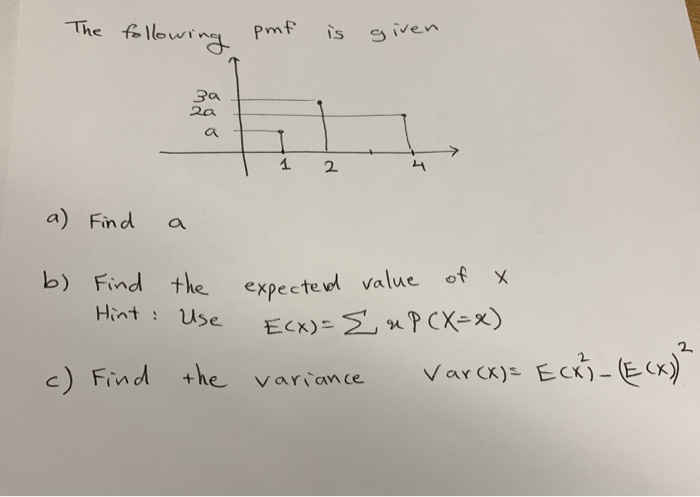 The following pmf is given
3a
2a
a
1 2 4
a) Find a
b) Find the expected value of x
Hint : Use E(x) = Σ x P(X=x)
c) Find the variance Var(x) = E(x²) - (E(x))²